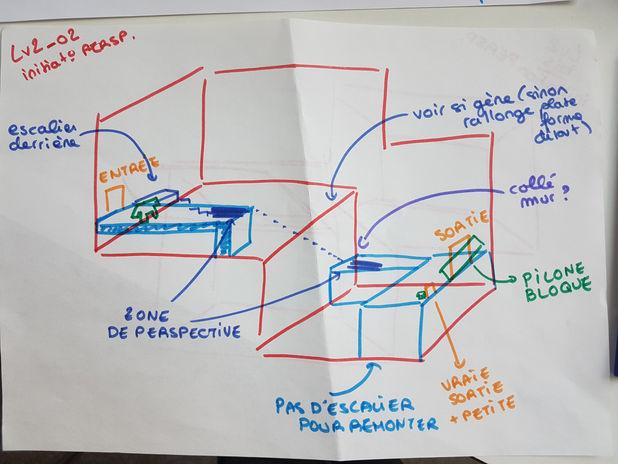 Lv2_02
initiat° PERSP.
escalier
derrière
ENTREE
voir si gène (sinon
rallonge plate
forme
début)
collé
mur?
SORTIE
PILONE
BLOQUE
ZONE
DE PERSPECTIVE
VRAIE
SORTIE
+ PETITE
PAS D'ESCALIER
POUR REMONTER